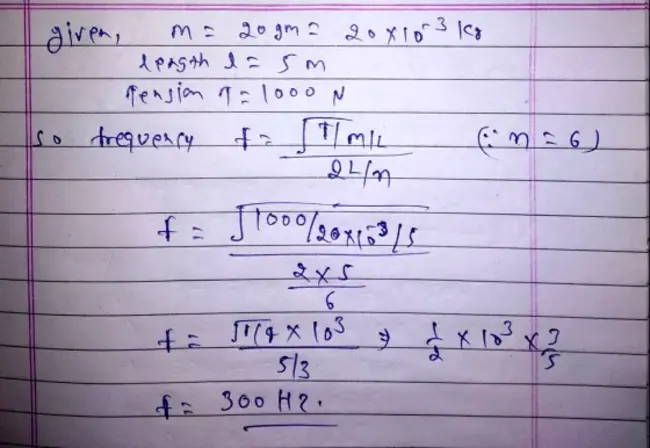 given, m = 20 gm = 20 × 10⁻³ kg
length l = 5 m
Tension T = 1000 N
so frequency f = √(T/m/L) / (2L/n) (∵ n = 6)
f = √(1000/20×10⁻³/5) / (2 × 5 / 6)
f = √(1/4) × 10³ / (5/3) ⇒ 1/2 × 10³ × 3/5
f = 300 Hz.